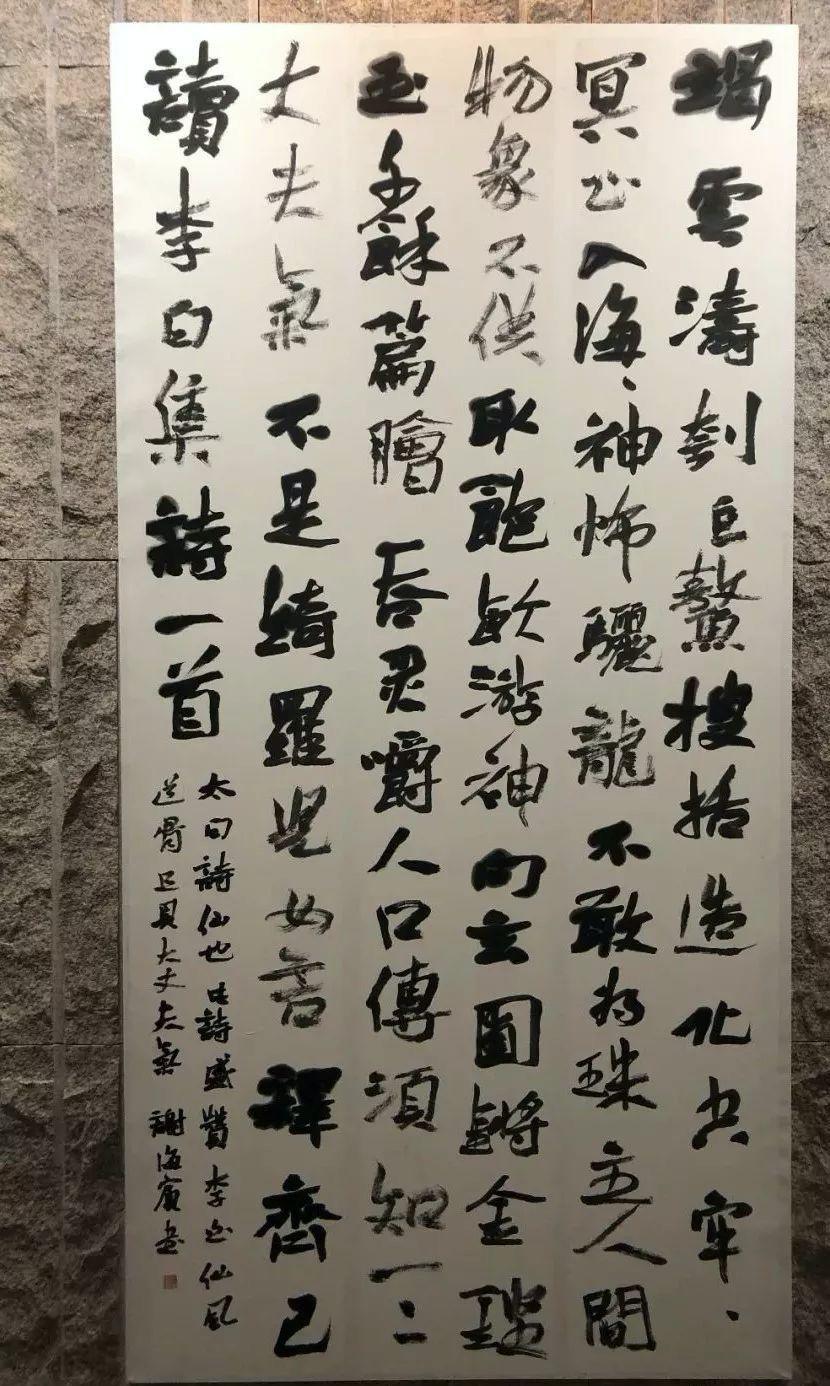 竭雲濤刳巨鰲搜括造化空牢、
冥心入海、神怖驪龍不敢為珠主人間
物象不供取飽飲游神向玄圃鏘金鏗
玉千餘篇膾吞炙嚼人口傳須知一、
丈夫氣不是綺羅兒女言釋齊己
讀李白集詩一首
太白詩仙也此詩盛贊李白仙風
道骨且具大丈夫氣 謝海賓書